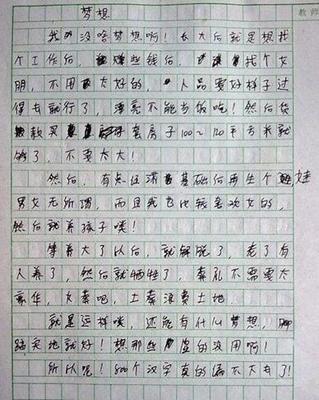 教师
梦想
我没啥梦想啊！长大后就是想找
个工作后，赚些钱后，找个女
朋，不用太好的，人品要好样子过
得去就行了，漂亮不能当饭吃！然后贷
款买套房子100~120平方米就
够了，不要太大！
然后，有点经济基础后再生个娃
男女无所谓，而且我也比较喜欢女的，
然后就养孩子喽！
等养大了以后，就解脱了，老了有
人养了，然后就牺牲了，葬礼不需要太
豪华，火葬吧，土葬浪费土地。
就是这样喽，还能有什么梦想，脚
踏实地就好！想那些虚的没用啊！
所以呢！800个汉字真的编不出来了！